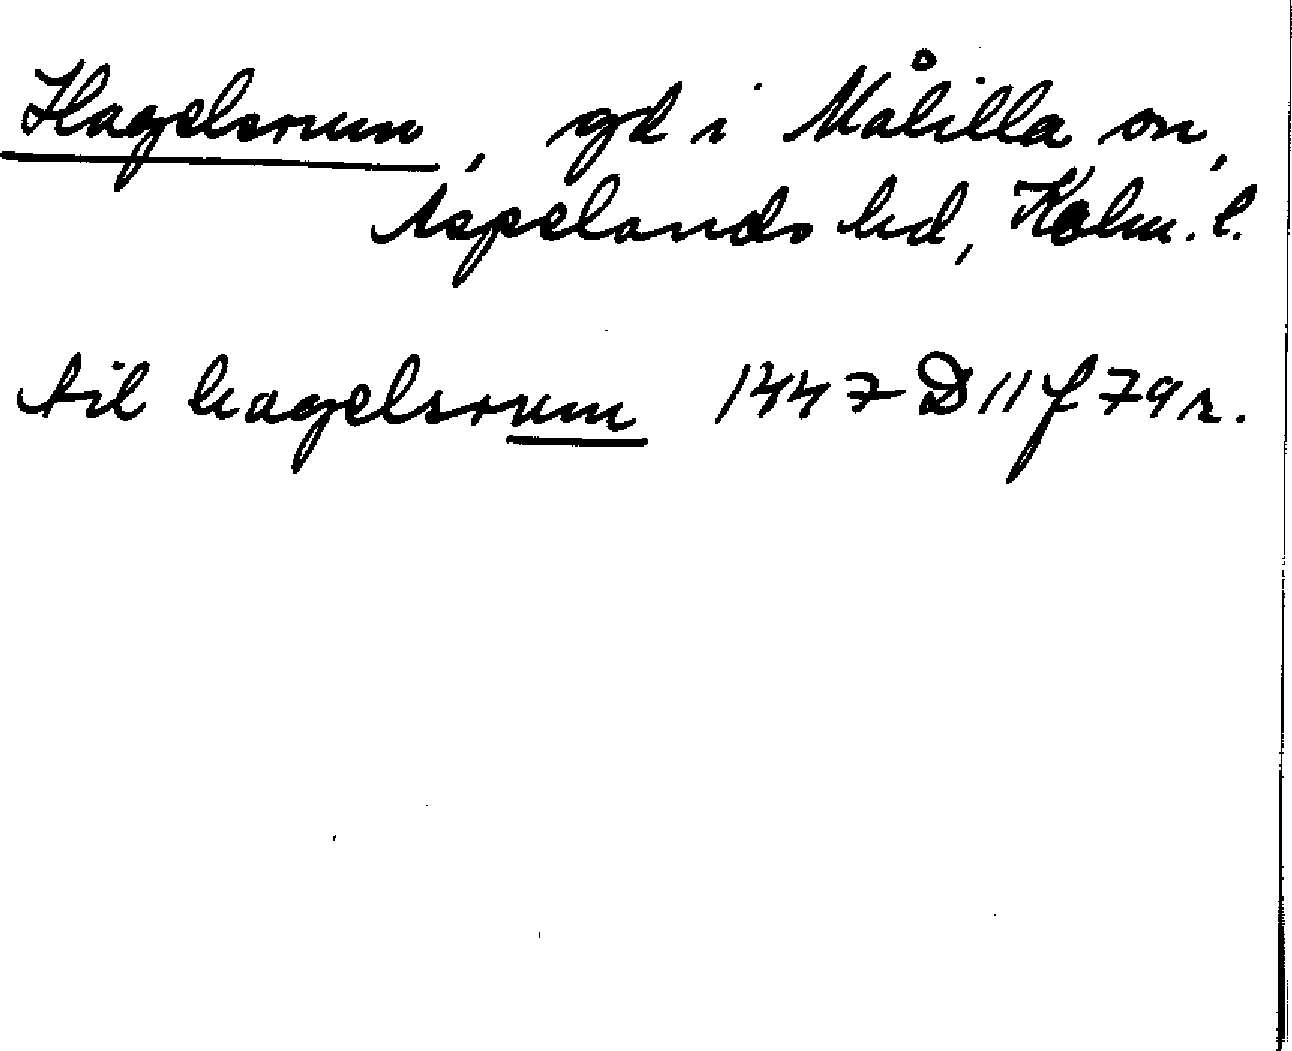 Hagelsrum, gd i Målilla sn,
Aspelands hd, Kalm. l.
til hagelsrum 1447 D 11 f 79 r.